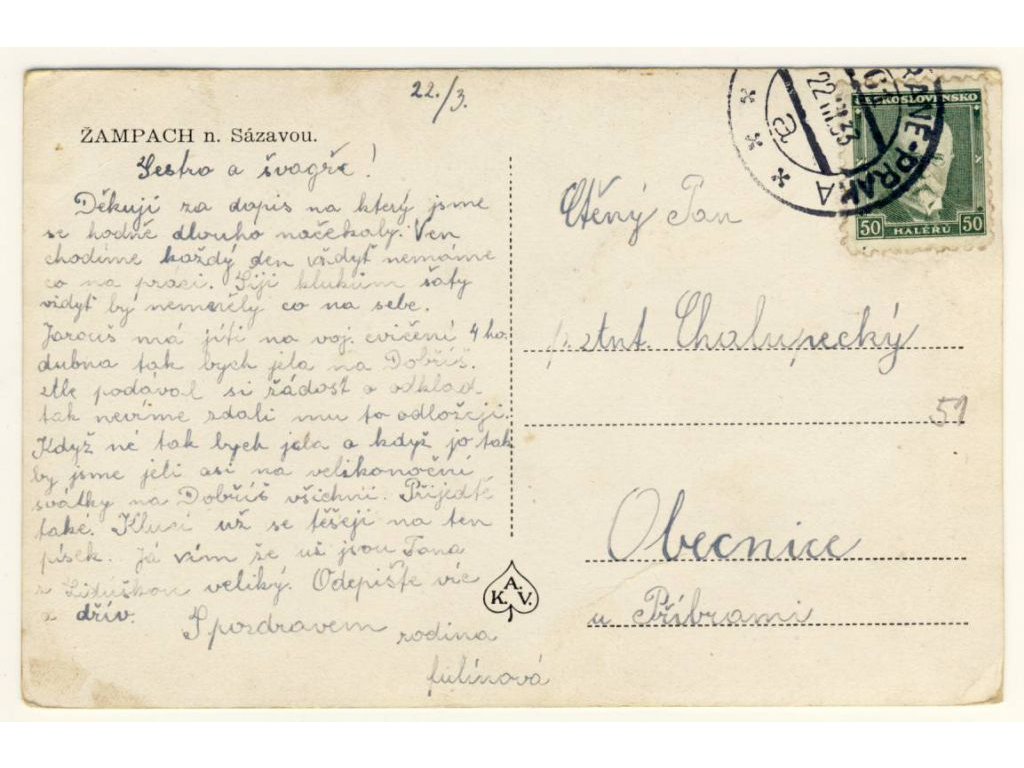 22./3.
ŽAMPACH n. Sázavou.
Sestro a švagře!
Děkuji za dopis na který jsme
se hodně dlouho načekaly. Ven
chodíme každý den vždyt nemáme
co na práci. Šiji klukům šaty
vidyt by neměly co na sebe.
Jarouš má jíti na voj. cvičení 4 ho.
dubna tak bych jela na Dobříš.
Ale podával si žádost o odklad
tak nevíme zdali mu to odložeji.
Když né tak bych jela a když jo tak
by jsme jeli asi na velikonoční
svátky na Dobříš všichni. Přijedtě
také. Kluci už se těšeji na ten
písek. Já vím še uš jsou Tana
s Liduškou veliký. Odepište víc
a dřív.
S pozdravem rodina
fulínová
A.
K. V.
RANÉ-PRAHA
22.III.33
a
ČESKOSLOVENSKO
50 HALÉŘŮ 50
Ctěný Pan
Chalupecký
51
Obecnice
u Příbrami